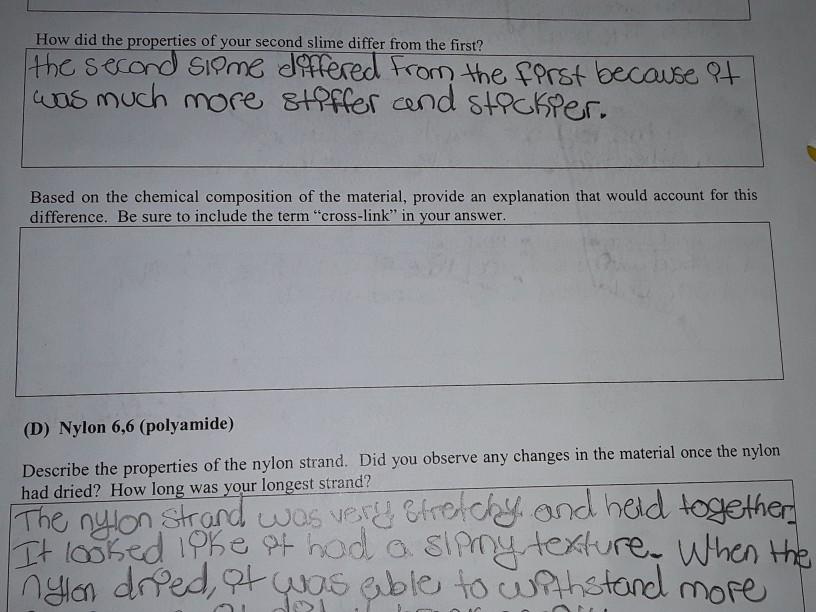 How did the properties of your second slime differ from the first?
the second slime differed from the first because it
was much more stiffer and stickier.
Based on the chemical composition of the material, provide an explanation that would account for this
difference. Be sure to include the term “cross-link” in your answer.
(D) Nylon 6,6 (polyamide)
Describe the properties of the nylon strand. Did you observe any changes in the material once the nylon
had dried? How long was your longest strand?
The nylon strand was very stretchy and held together.
It looked like it had a slimy texture. When the
nylon dried, it was able to withstand more